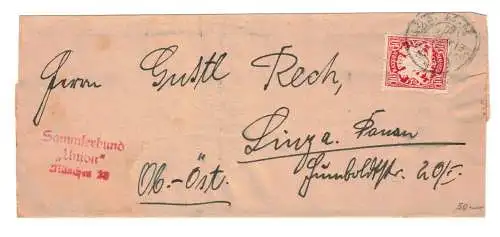 Herrn Gustl Rech,
Sammlerbund
„Union"
München 23
Linz a. Donau
Ob.-Öst.
Humboldtstr. 20/I.
50.—